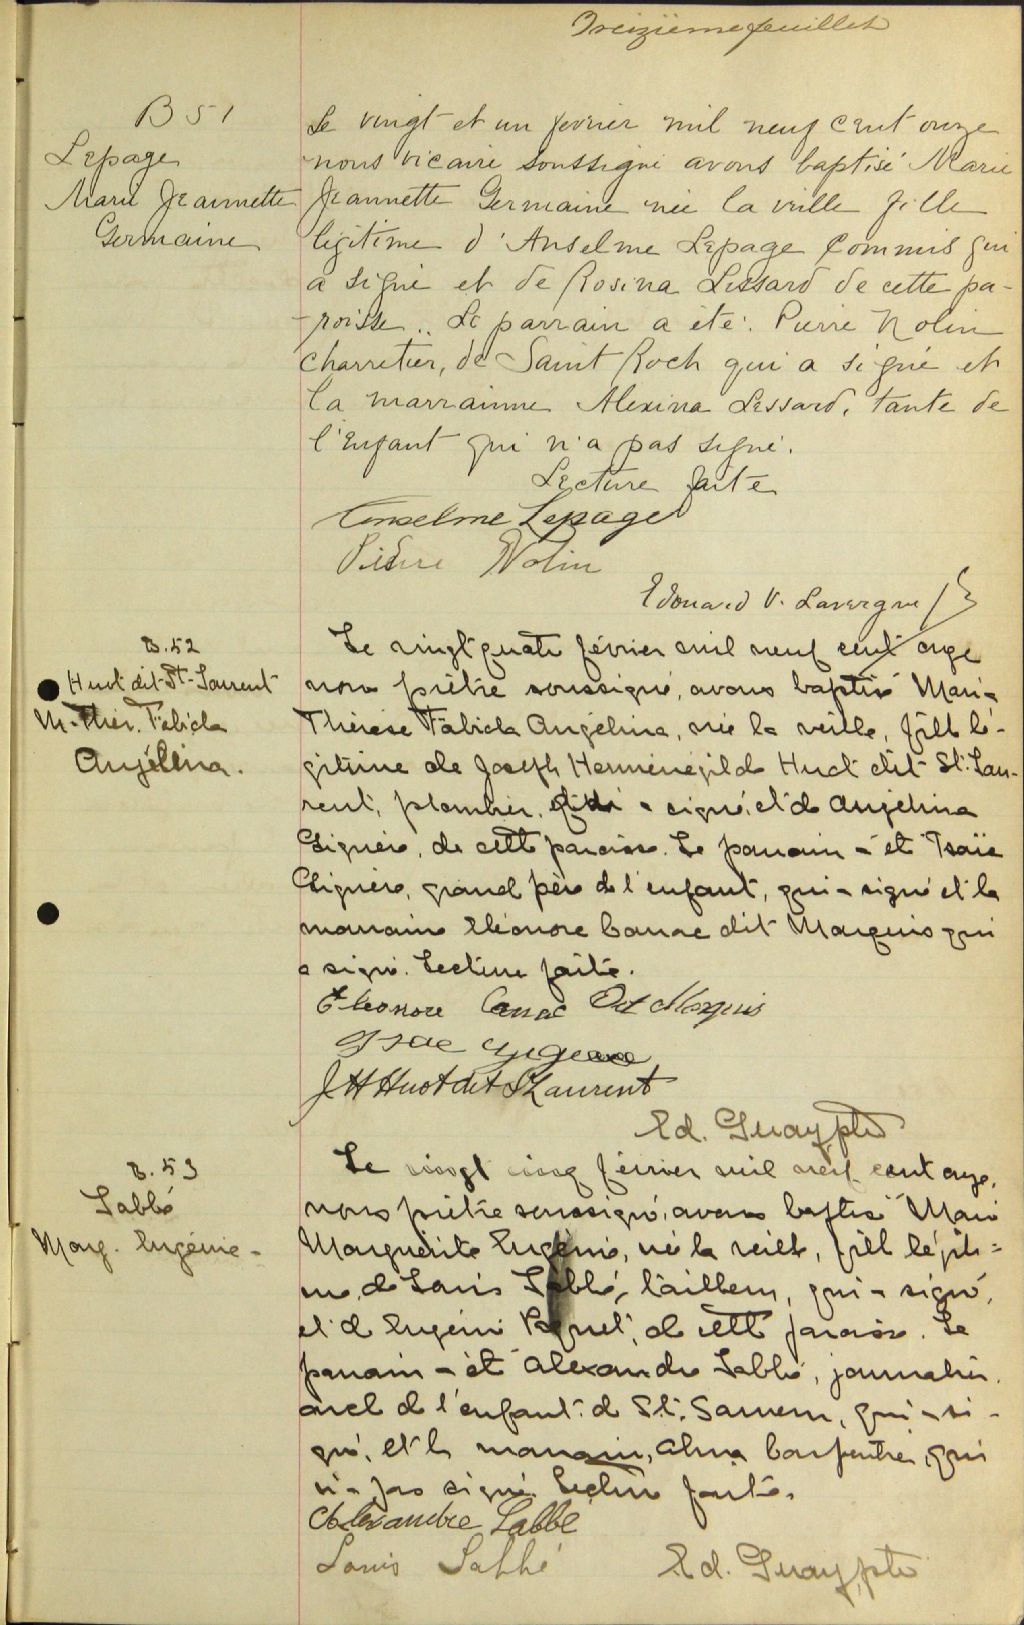 Treizième feuillet
B 51
Lepage
Marie Jeannette
Germaine
Le vingt et un fevrier mil neuf cent onze
nous vicaire soussigné avons baptisé Marie
Jeannette Germaine née la veille fille
légitime d'Anselme Lepage Commis qui
a signé et de Rosina Lessard de cette pa-
-roisse.. Le parrain a été: Pierre Nolin
charretier, de Saint Roch qui a signé et
la marrainne Alexina Lessard, tante de
l'Enfant qui n'a pas signé.
Lecture faite
Anselme Lepage
Pierre Nolin
Edouard V. Lavergne
B. 52
Huot dit St-Laurent
M.-Thér. Fabiola
Angélina.
Le vingt quatre février mil neuf cent onze
nous prêtre soussigné, avons baptisé Marie
Thérèse Fabiola Angélina, née la veille, fille lé-
gitime de Joseph Herménégilde Huot dit St. Lau-
rent, plombier, qui a signé, et de Angelina
Gignère, de cette paroisse. Le parrain a été Isaïe
Gignère, grand père de l'enfant, qui a signé et la
marraine Eléonore Canac dit Marquis qui
a signé. Lecture faite.
Eleonore Canac Dit Marquis
J H Huot dit St Laurent
Ed. Guay ptre
B. 53
Labbé
Marg. Eugénie-
Le vingt cinq février mil neuf cent onze,
nous prêtre soussigné, avons baptisé Marie
Marguerite Eugénie, née la veille, fille légiti=
me de Louis Labbé, tailleur, qui a signé,
et de Eugénie Paquet, de cette paroisse. Le
parrain a été Alexandre Labbé, journalier,
oncle de l'enfant de St. Sauveur, qui a si-
gné, et la marraine, Alma Carpentier, qui
n'a pas signé. Lecture faite.
Alexandre Labbé
Louis Labbé
Ed. Guay, ptre